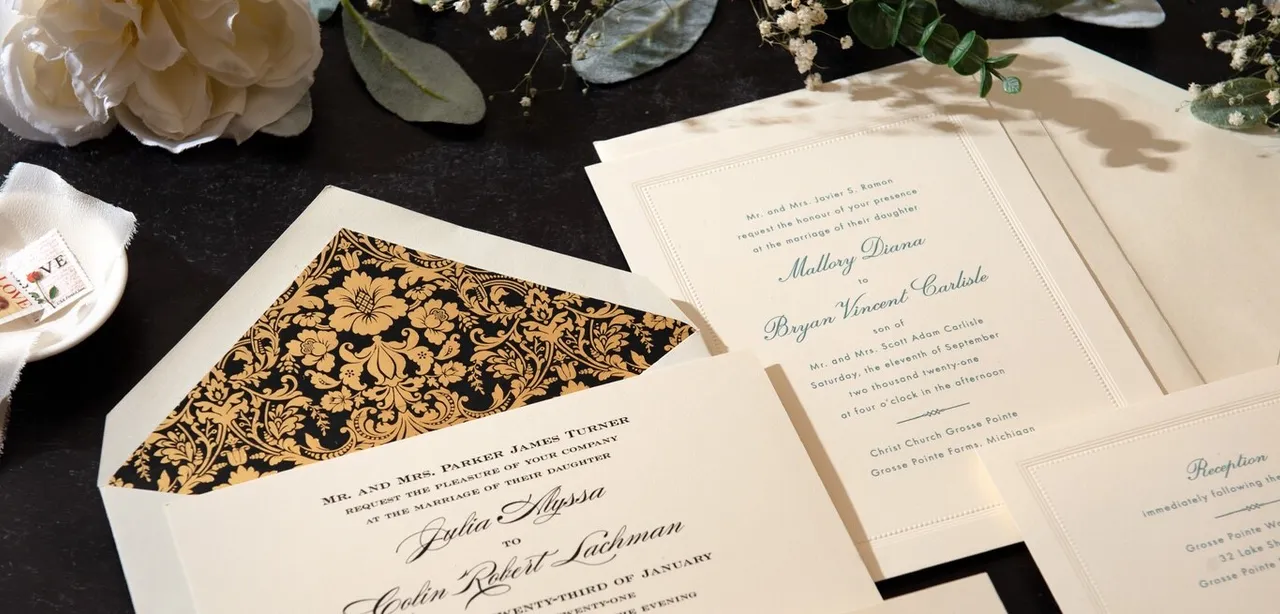 LOVE
OVE
MR. AND MRS. PARKER JAMES TURNER
REQUEST THE PLEASURE OF YOUR COMPANY
AT THE MARRIAGE OF THEIR DAUGHTER
Julia Alyssa
TO
Colin Robert Lachman
TWENTY-THIRD OF JANUARY
TWENTY-ONE
THE EVENING
Mr. and Mrs. Javier S. Ramon
request the honour of your presence
at the marriage of their daughter
Mallory Diana
to
Bryan Vincent Carlisle
son of
Mr. and Mrs. Scott Adam Carlisle
Saturday, the eleventh of September
two thousand twenty-one
at four o'clock in the afternoon
Christ Church Grosse Pointe
Grosse Pointe Farms, Michigan
Reception
immediately following the
Grosse Pointe
32 Lake
Grosse Pointe